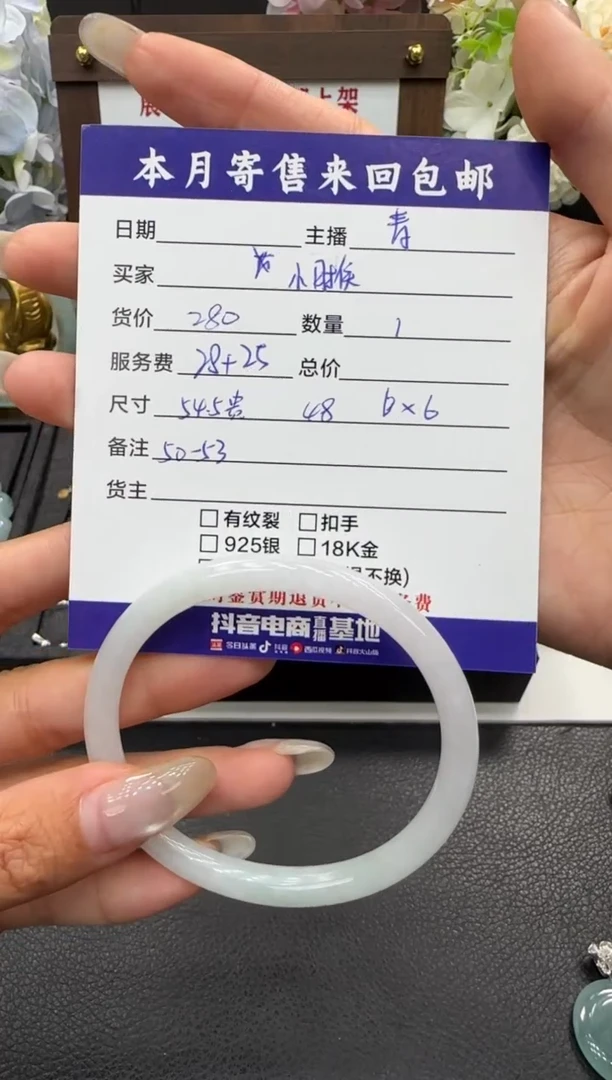 上架
本月寄售来回包邮
日期 主播 青
买家 小时候
货价 280 数量 1
服务费 28+25 总价
尺寸 54.5贵 48 6×6
备注 50-53
货主
□有纹裂 □扣手
□925银 □18K金
不换)
抖音电商直播基地
今日头条 抖音 西瓜视频 抖音火山版